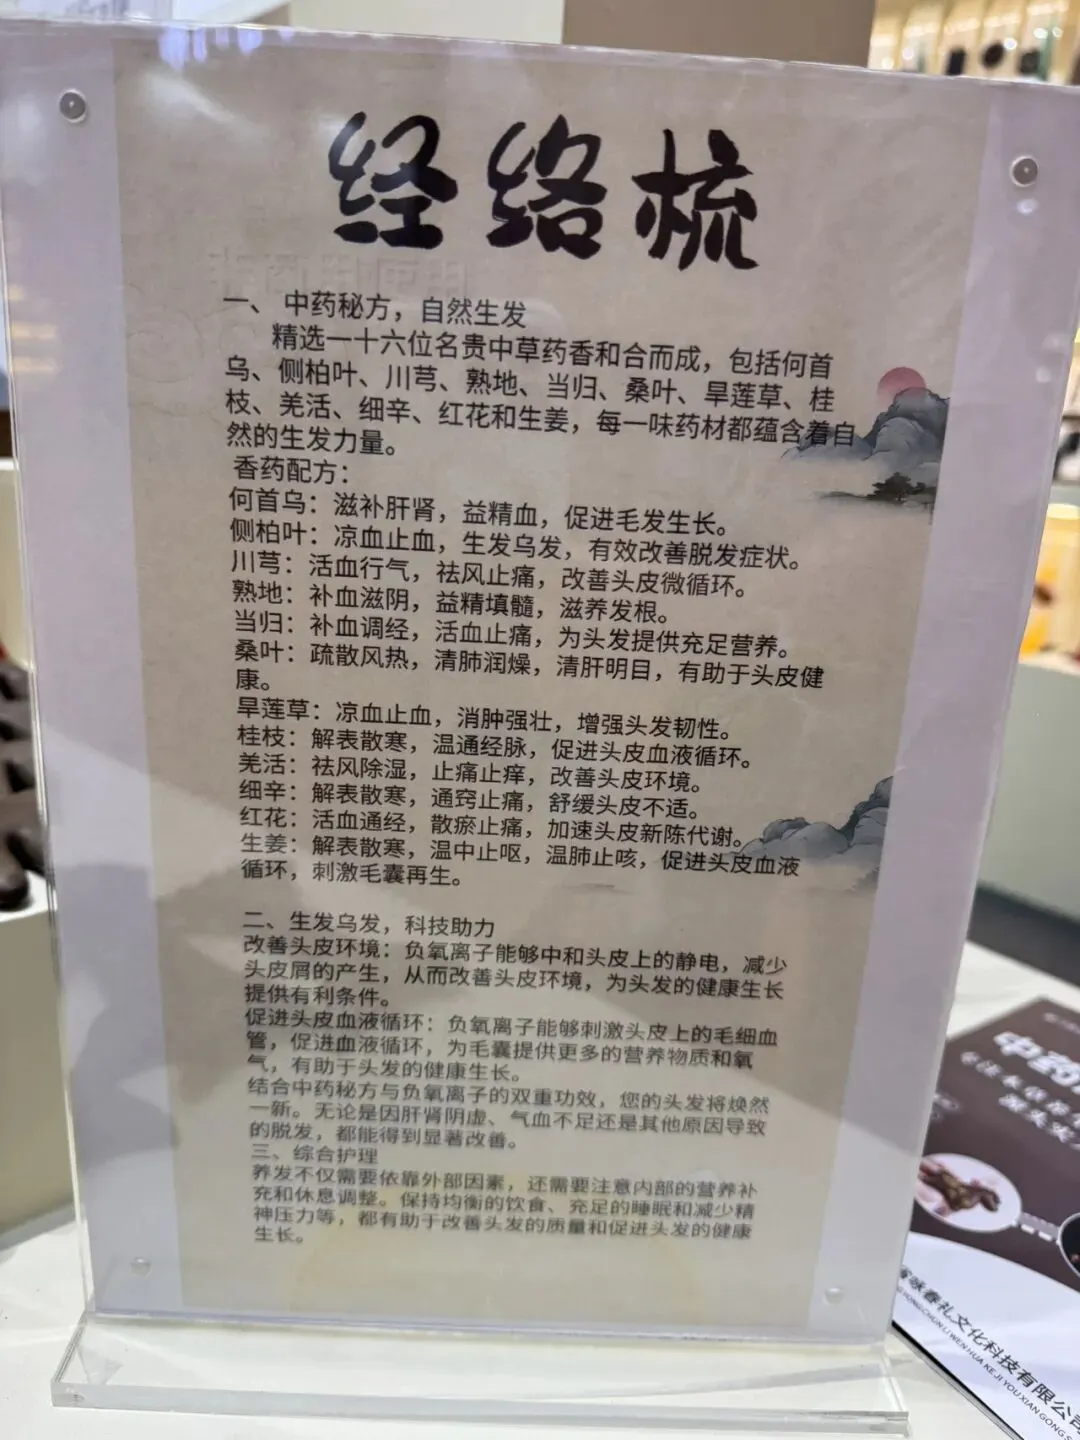 经络梳
一、中药秘方，自然生发
精选一十六位名贵中草药香和合而成，包括何首
乌、侧柏叶、川芎、熟地、当归、桑叶、旱莲草、桂
枝、羌活、细辛、红花和生姜，每一味药材都蕴含着自
然的生发力量。
香药配方：
何首乌：滋补肝肾，益精血，促进毛发生长。
侧柏叶：凉血止血，生发乌发，有效改善脱发症状。
川芎：活血行气，祛风止痛，改善头皮微循环。
熟地：补血滋阴，益精填髓，滋养发根。
当归：补血调经，活血止痛，为头发提供充足营养。
桑叶：疏散风热，清肺润燥，清肝明目，有助于头皮健
康。
旱莲草：凉血止血，消肿强壮，增强头发韧性。
桂枝：解表散寒，温通经脉，促进头皮血液循环。
羌活：祛风除湿，止痛止痒，改善头皮环境。
细辛：解表散寒，通窍止痛，舒缓头皮不适。
红花：活血通经，散瘀止痛，加速头皮新陈代谢。
生姜：解表散寒，温中止呕，温肺止咳，促进头皮血液
循环，刺激毛囊再生。
二、生发乌发，科技助力
改善头皮环境：负氧离子能够中和头皮上的静电，减少
头皮屑的产生，从而改善头皮环境，为头发的健康生长
提供有利条件。
促进头皮血液循环：负氧离子能够刺激头皮上的毛细血
管，促进血液循环，为毛囊提供更多的营养物质和氧
气，有助于头发的健康生长。
结合中药秘方与负氧离子的双重功效，您的头发将焕然
一新。无论是因肝肾阴虚、气血不足还是其他原因导致
的脱发，都能得到显著改善。
三、综合护理
养发不仅需要依靠外部因素，还需要注意内部的营养补
充和休息调整。保持均衡的饮食、充足的睡眠和减少精
神压力等，都有助于改善头发的质量和促进头发的健康
生长。
中药
咏春礼文化科技有限公司
YONG CHUN LI WEN HUA KE JI YOU XIAN GONG S